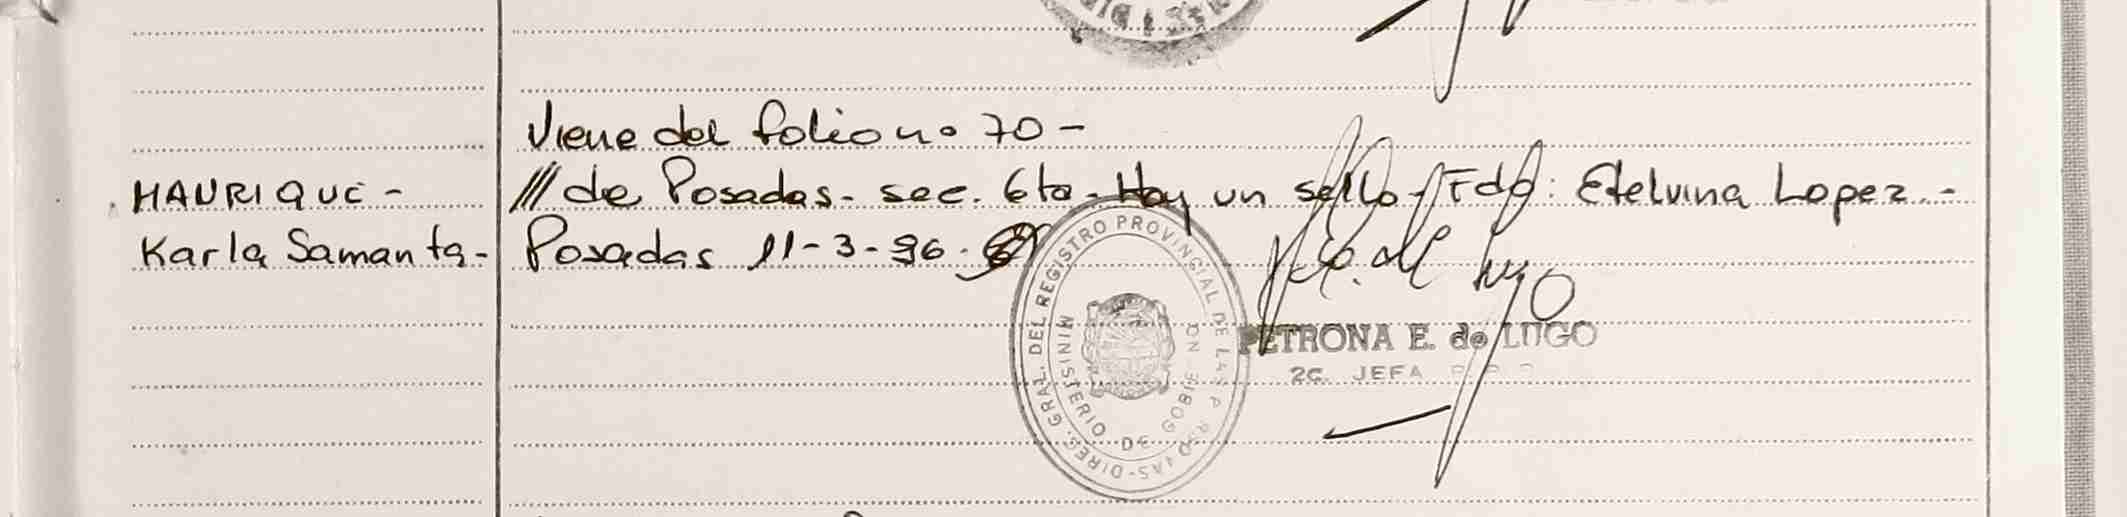 Viene del folio nº 70 -
HAURIQUE -
/// de Posadas - sec. 6ta - Hay un sello - Fdo: Etelvina Lopez -
Karla Samanta -
Posadas 11-3-96.
DIREC. GRAL. DEL REGISTRO PROVINCIAL DE LAS PERSONAS
MINISTERIO DE GOBIERNO
PETRONA E. de LUGO
2C. JEFA